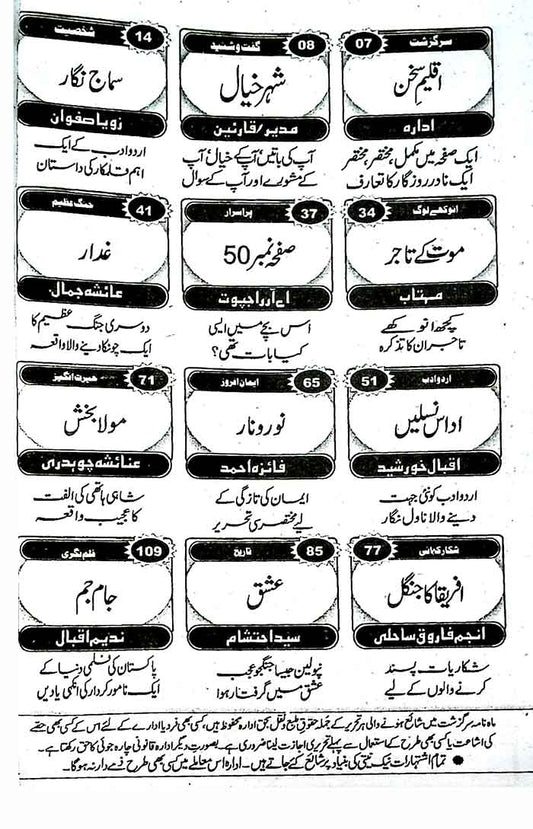 سرگزشت
07
اقلیم سخن
ادارہ
ایک صفحہ میں مکمل، مختصر مختصر
ایک نادر روزگار کا تعارف
گفت و شنید
08
شہر خیال
مدیر/قارئین
آپ کی باتیں آپ کے خیال آپ
کے مشورے اور آپ کے سوال
شخصیت
14
سماج نگار
زویا صفوان
اردو ادب کے ایک
اہم قلمکار کی داستان
انوکھے لوگ
34
موت کے تاجر
مہتاب
کچھ انوکھے
تاجران کا تذکرہ
پراسرار
37
صفحہ نمبر 50
اے آر راجپوت
اس بچے میں ایسی
کیا بات تھی؟
جنگ عظیم
41
غدار
عائشہ جمال
دوسری جنگ عظیم کا
ایک چونکا دینے والا واقعہ
اردو ادب
51
اداس نسلیں
اقبال خورشید
اردو ادب کو نئی جہت
دینے والا ناول نگار
ایمان افروز
65
نور و نار
فائزہ احمد
ایمان کی تازگی کے
لیے مختصر سی تحریر
حیرت انگیز
71
مولا بخش
عنائشہ چوہدری
شاہی ہاتھی کی الفت
کا عجیب واقعہ
شکار کہانی
77
افریقا کا جنگل
انجم فاروق ساحلی
شکاریات پسند
کرنے والوں کے لیے
تاریخ
85
عشق
سید احتشام
نپولین جیسا جنگجو عجب
عشق میں گرفتار ہوا
فلم نگری
109
جام جم
ندیم اقبال
پاکستان کی فلمی دنیا کے
ایک نامور کردار کی انکہی یادیں
ماہ نامہ سرگزشت میں شائع ہونے والی ہر تحریر کے جملہ حقوق طبع و نقل بحق ادارہ محفوظ ہیں، کسی بھی فرد یا ادارے کے لئے اس کے کسی بھی حصے
کی اشاعت یا کسی بھی طرح کے استعمال سے پہلے تحریری اجازت لینا ضروری ہے۔ بصورت دیگر ادارہ قانونی چارہ جوئی کا حق رکھتا ہے۔
● تمام اشتہارات نیک نیتی کی بنیاد پر شائع کیے جاتے ہیں۔ ادارہ اس معاملے میں کسی بھی طرح ذمے دار نہ ہوگا۔